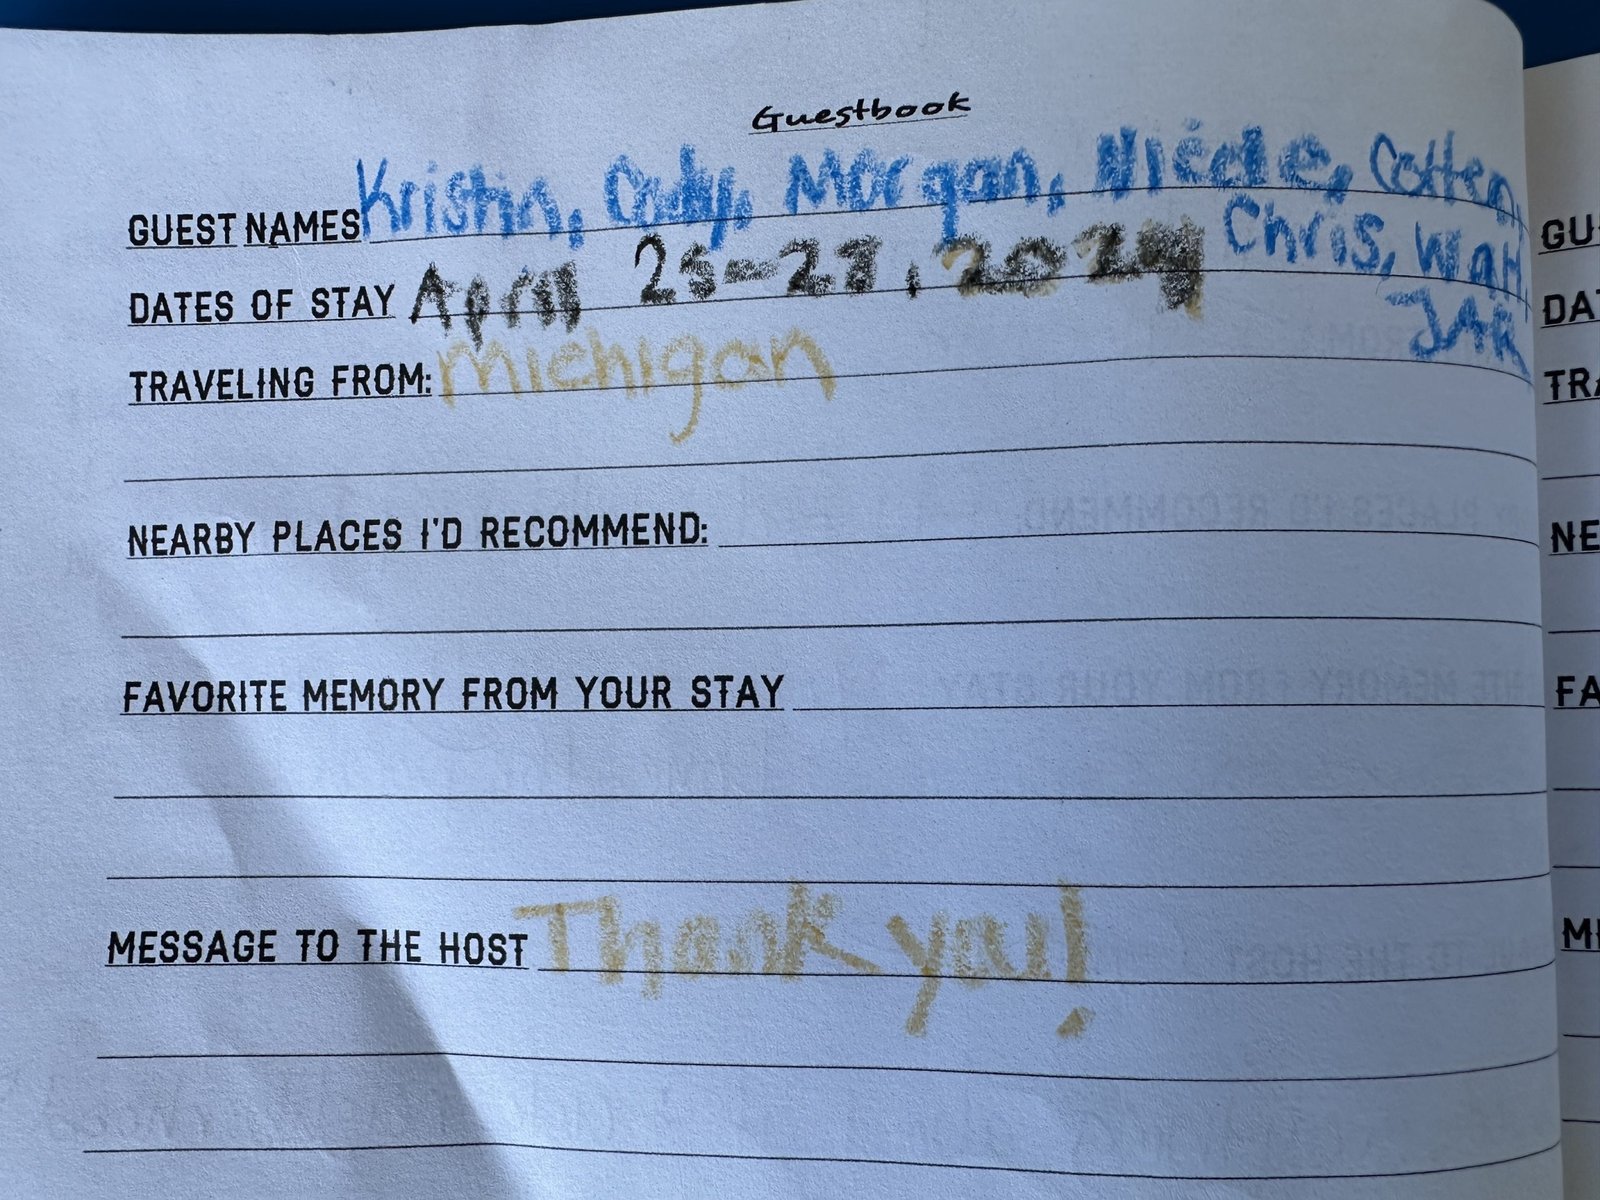 Guestbook
GUEST NAMES Kristin, Cody, Morgan, Nicole, Colten,
Chris, Watt,
JAR
DATES OF STAY April 25-27, 2024
TRAVELING FROM: Michigan
NEARBY PLACES I'D RECOMMEND:
FAVORITE MEMORY FROM YOUR STAY
MESSAGE TO THE HOST Thank you!
GU
DA
TRA
NE
FA
ME